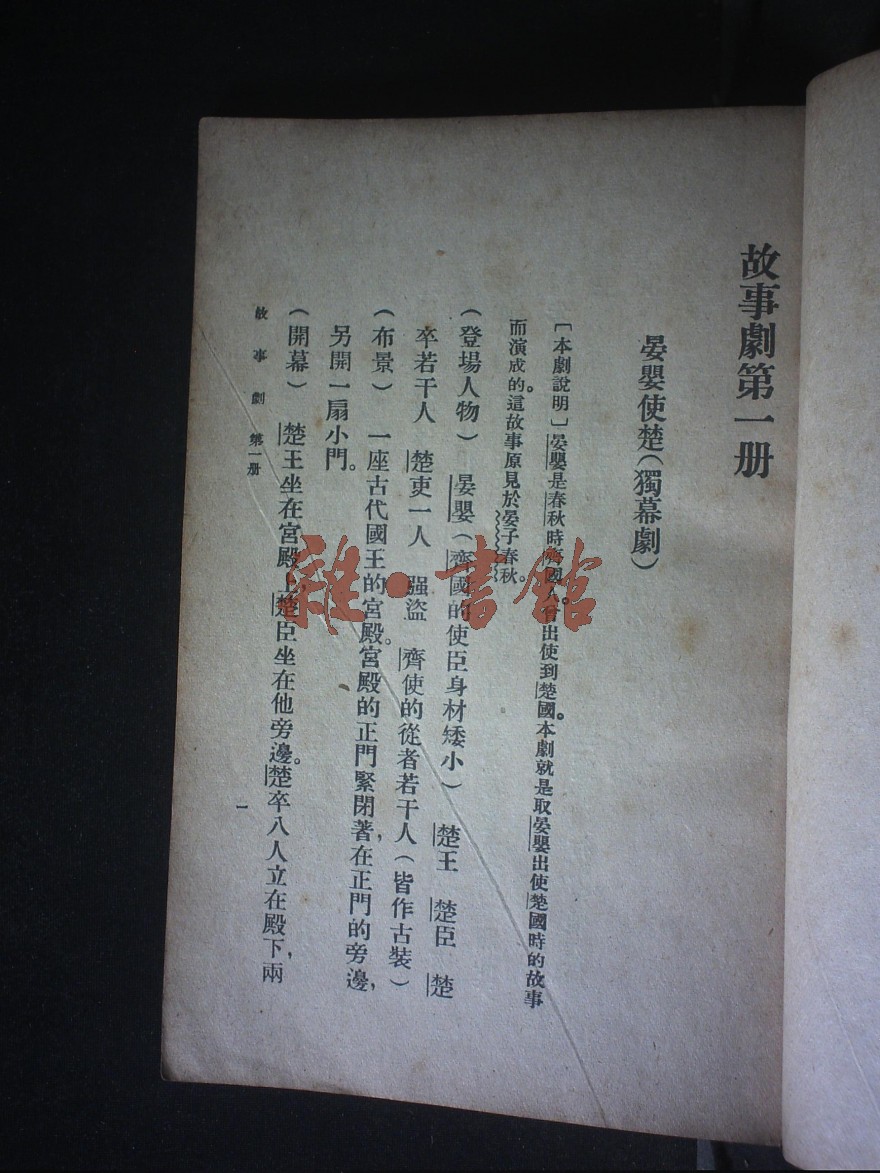 故事劇第一册
晏嬰使楚(獨幕劇)
〔本劇說明〕晏嬰是春秋時齊國人。曾出使到楚國。本劇就是取晏嬰出使楚國時的故事
而演成的。這故事原見於晏子春秋。
(登場人物) 晏嬰(齊國的使臣身材矮小) 楚王 楚臣 楚
卒若干人 楚吏一人 强盜 齊使的從者若干人(皆作古裝)
(布景) 一座古代國王的宮殿。宮殿的正門緊閉著,在正門的旁邊,
另開一扇小門。
(開幕) 楚王坐在宮殿上,楚臣坐在他旁邊。楚卒八人立在殿下,兩
故事劇 第一册
一
雜·書館